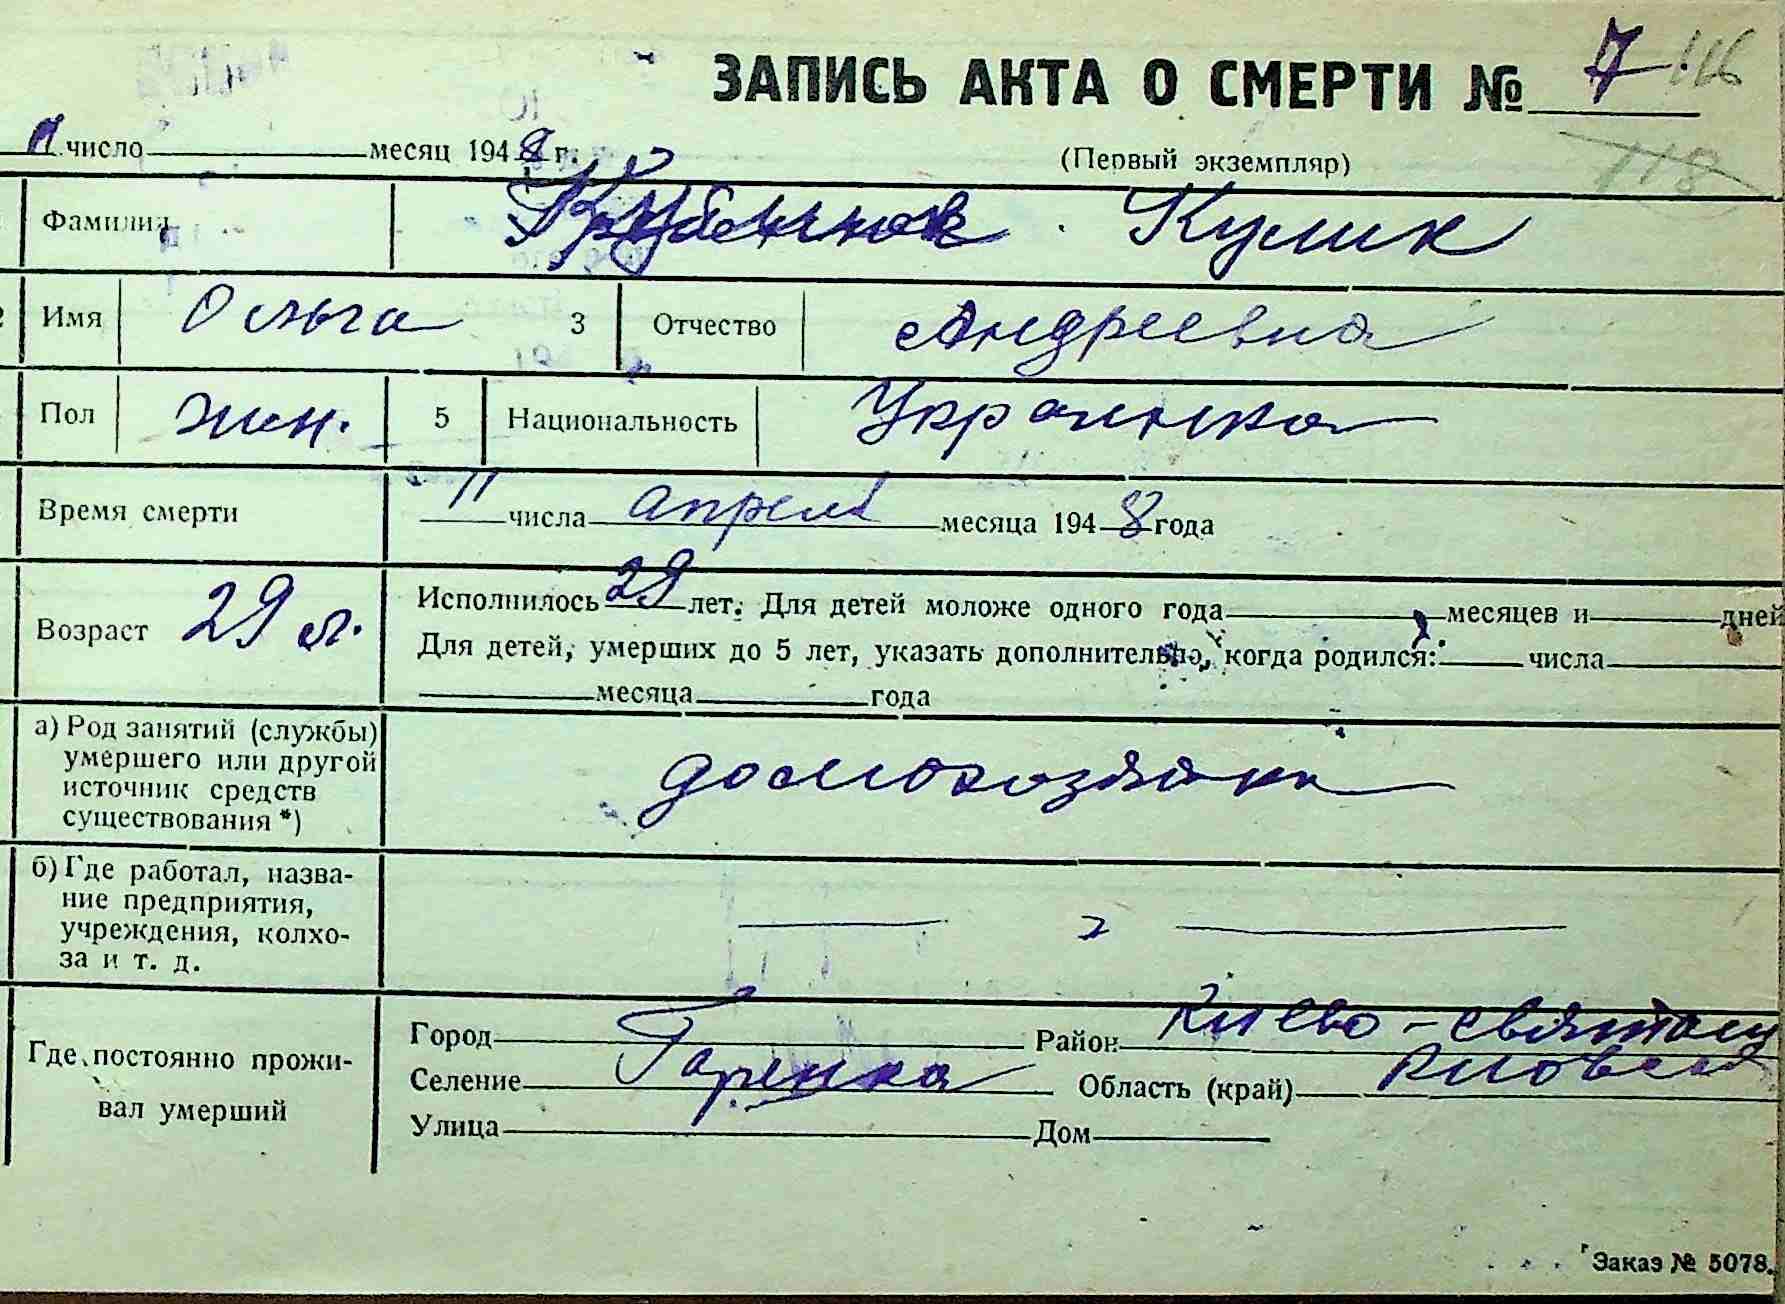 ЗАПИСЬ АКТА О СМЕРТИ № 7. 116
число месяц 1948 г. (Первый экземпляр) 118
Фамилия Кулик
Имя Ольга 3 Отчество Андреевна
Пол жен. 5 Национальность Украинка
Время смерти 11 числа апреля месяца 1948 года
Возраст 29 л. Исполнилось 29 лет. Для детей моложе одного года месяцев и дней
Для детей, умерших до 5 лет, указать дополнительно, когда родился: числа
месяца года
а) Род занятий (службы) умершего или другой источник средств существования *) домохозяйка
б) Где работал, назва-
ние предприятия,
учреждения, колхо-
за и т. д.
Где постоянно прожи-
вал умерший
Город Район Киево-Святош
Селение Горенка Область (край)
Улица Дом
Заказ № 5078.